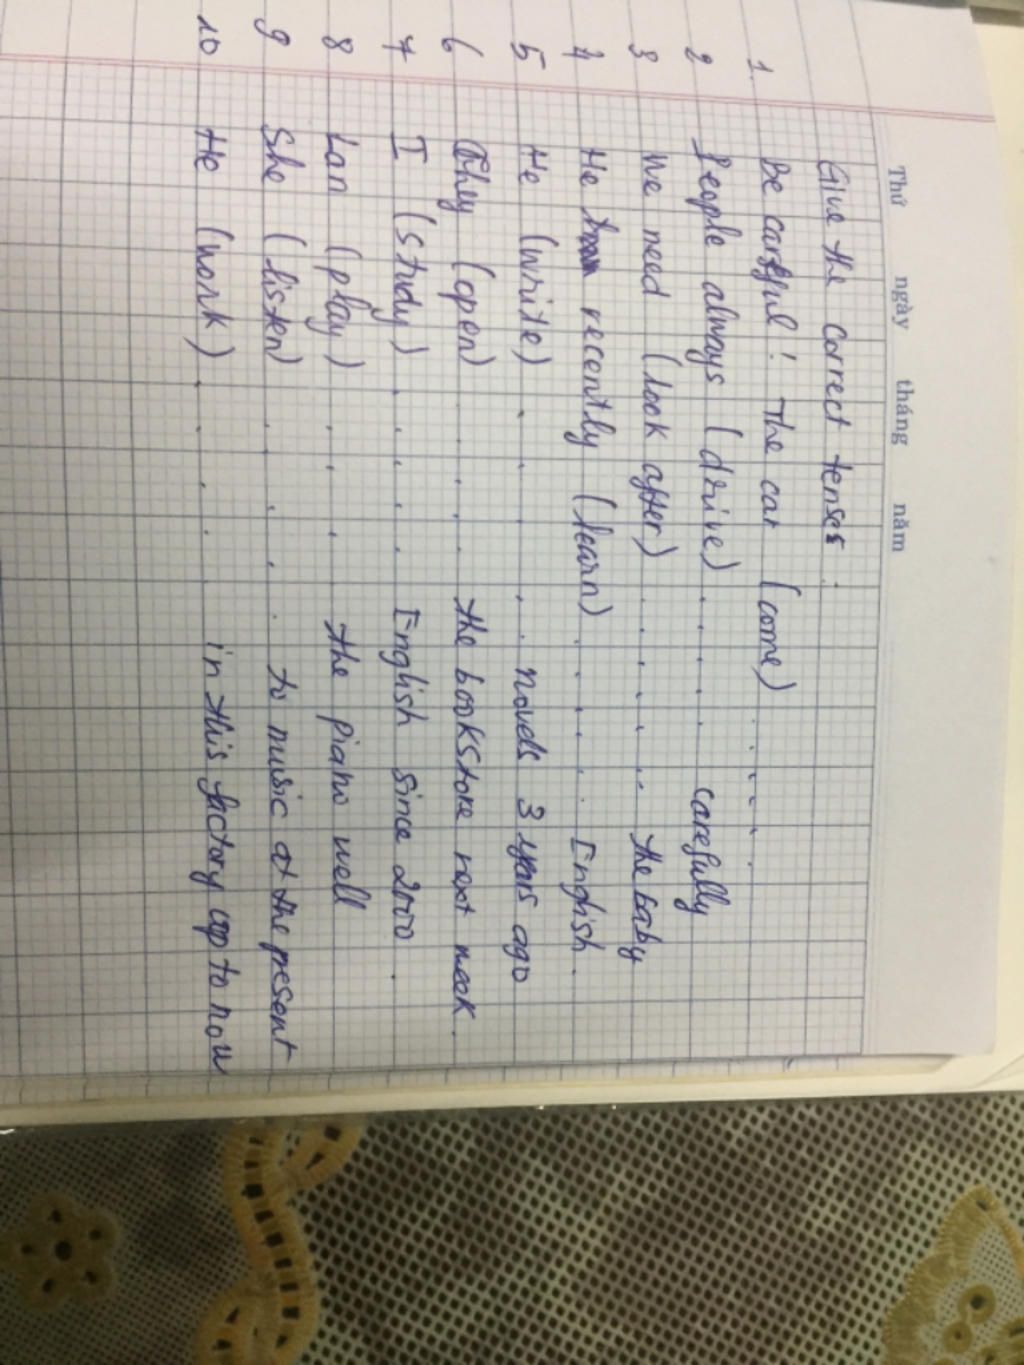 Thứ ngày tháng năm
Give the correct tenses :
1 Be careful! The car (come) . . . . .
2 People always (drive) . . . . carefully
3 We need (look after) . . . . . the baby
4 He recently (learn) . . . . . English .
5 He (write) . . . . . novels 3 years ago
6 They (open) . . . . the bookstore next week .
7 I (study) . . . . English since 2000 .
8 Lan (play) . . . . the piano well
9 She (listen) . . . . . to music at the present
10 He (work) . . . . in this factory up to now